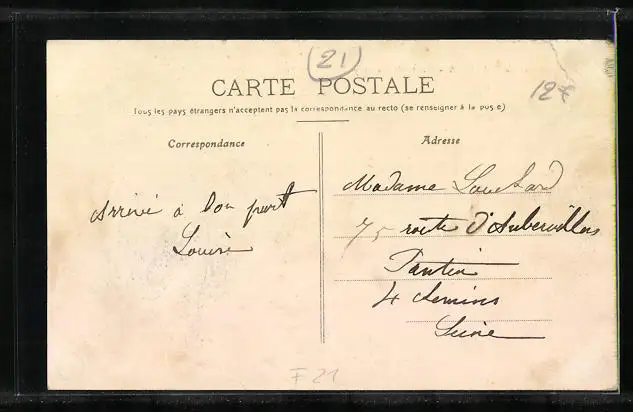 21
CARTE POSTALE
12€
Tous les pays étrangers n'acceptent pas la correspondance au recto (se renseigner à la poste)
Correspondance
Adresse
Arrivé à bon port
Louise
Madame Louchard
75 route d'Aubervilliers
Pantin
4 chemins
Seine
F 21